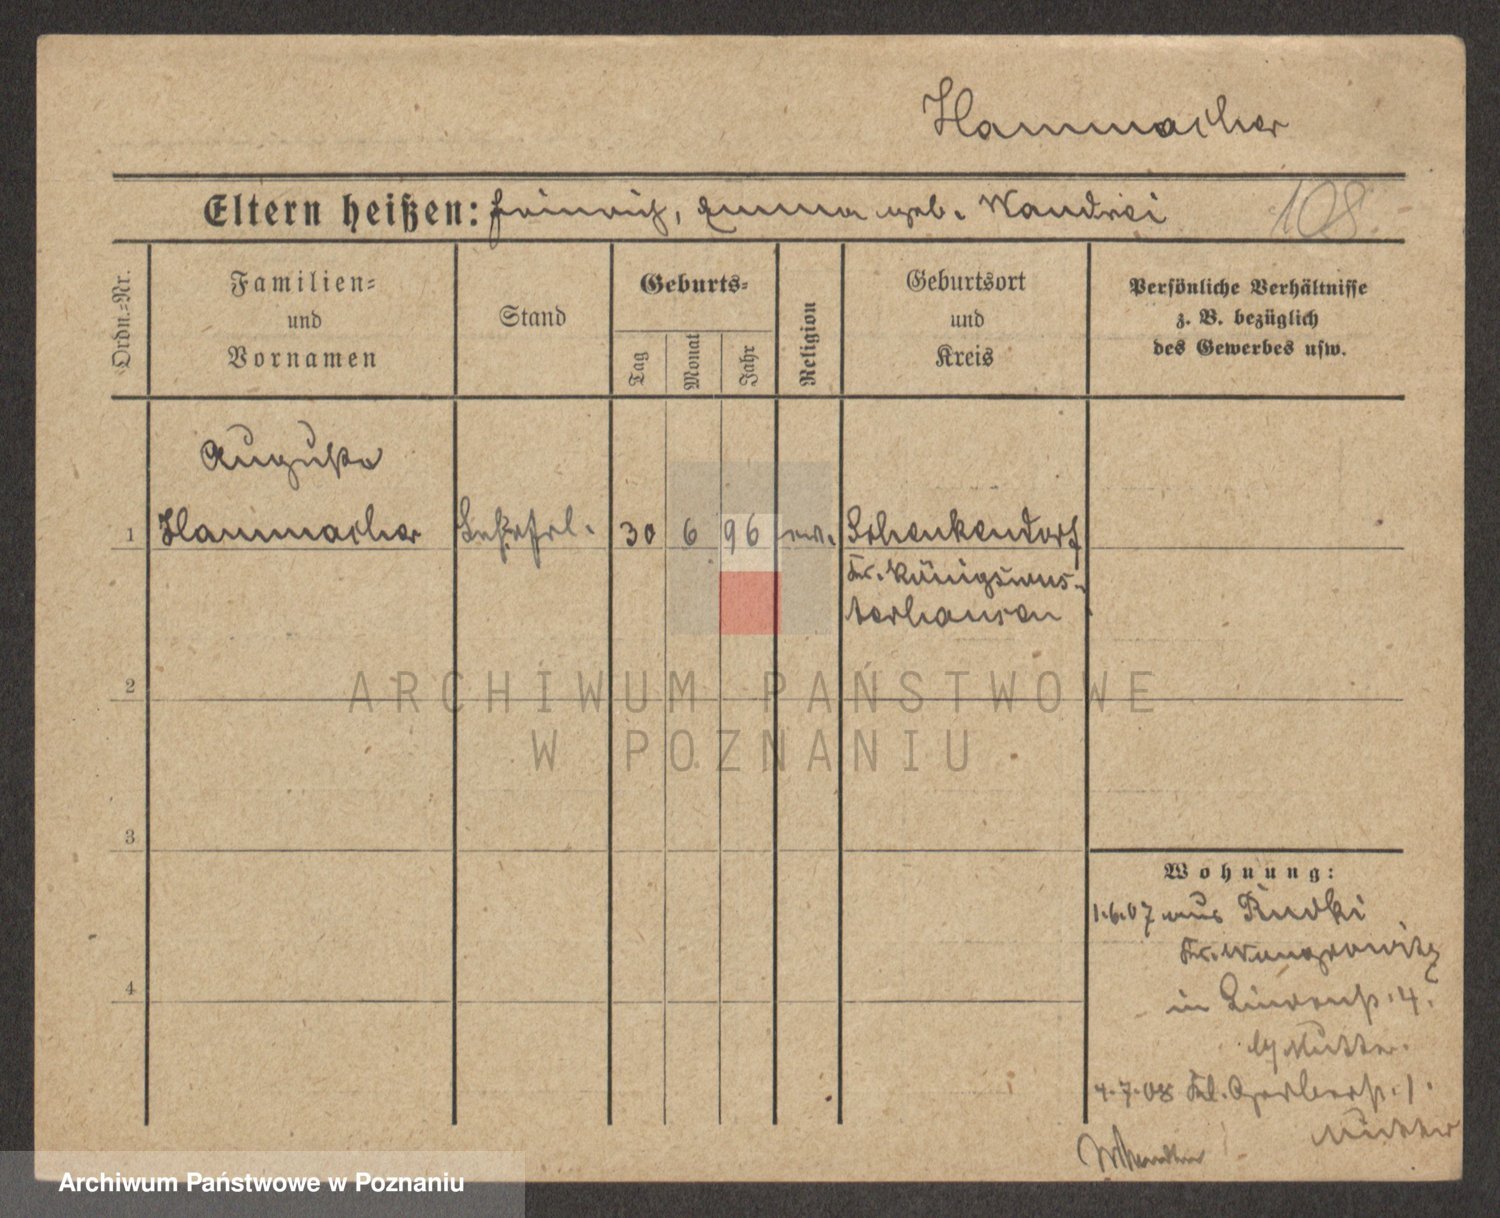 Hammacher
Eltern heißen: Heinrich, Emma geb. Wandrei
108.
Ordn.-Nr.
Familien-
und
Vornamen
Stand
Geburts-
Tag
Monat
Jahr
Religion
Geburtsort
und
Kreis
Persönliche Verhältnisse
z. B. bezüglich
des Gewerbes usw.
Auguste
1 Hammacher 30 6 96 ev. Schenkendorf
Kr. Königswus-
terhausen
2
ARCHIWUM PAŃSTWOWE
W POZNANIU
3
Wohnung:
1.6.07 aus Rudki
Kr. Wongrowitz
in Lindenst. 4.
b/ Mutter.
4
4.7.08 Kl. Gerberst. 1.
Mutter
Archiwum Państwowe w Poznaniu